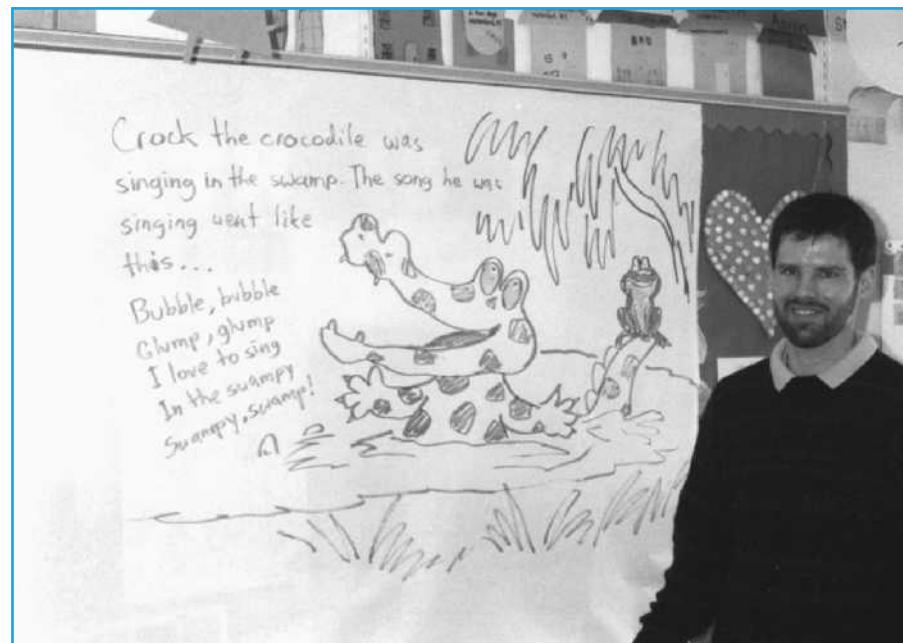 Crock the crocodile was
singing in the swamp. The song he was
singing went like
this...
Bubble, bubble
Glump, glump
I love to sing
In the swampy
swampy, swamp!